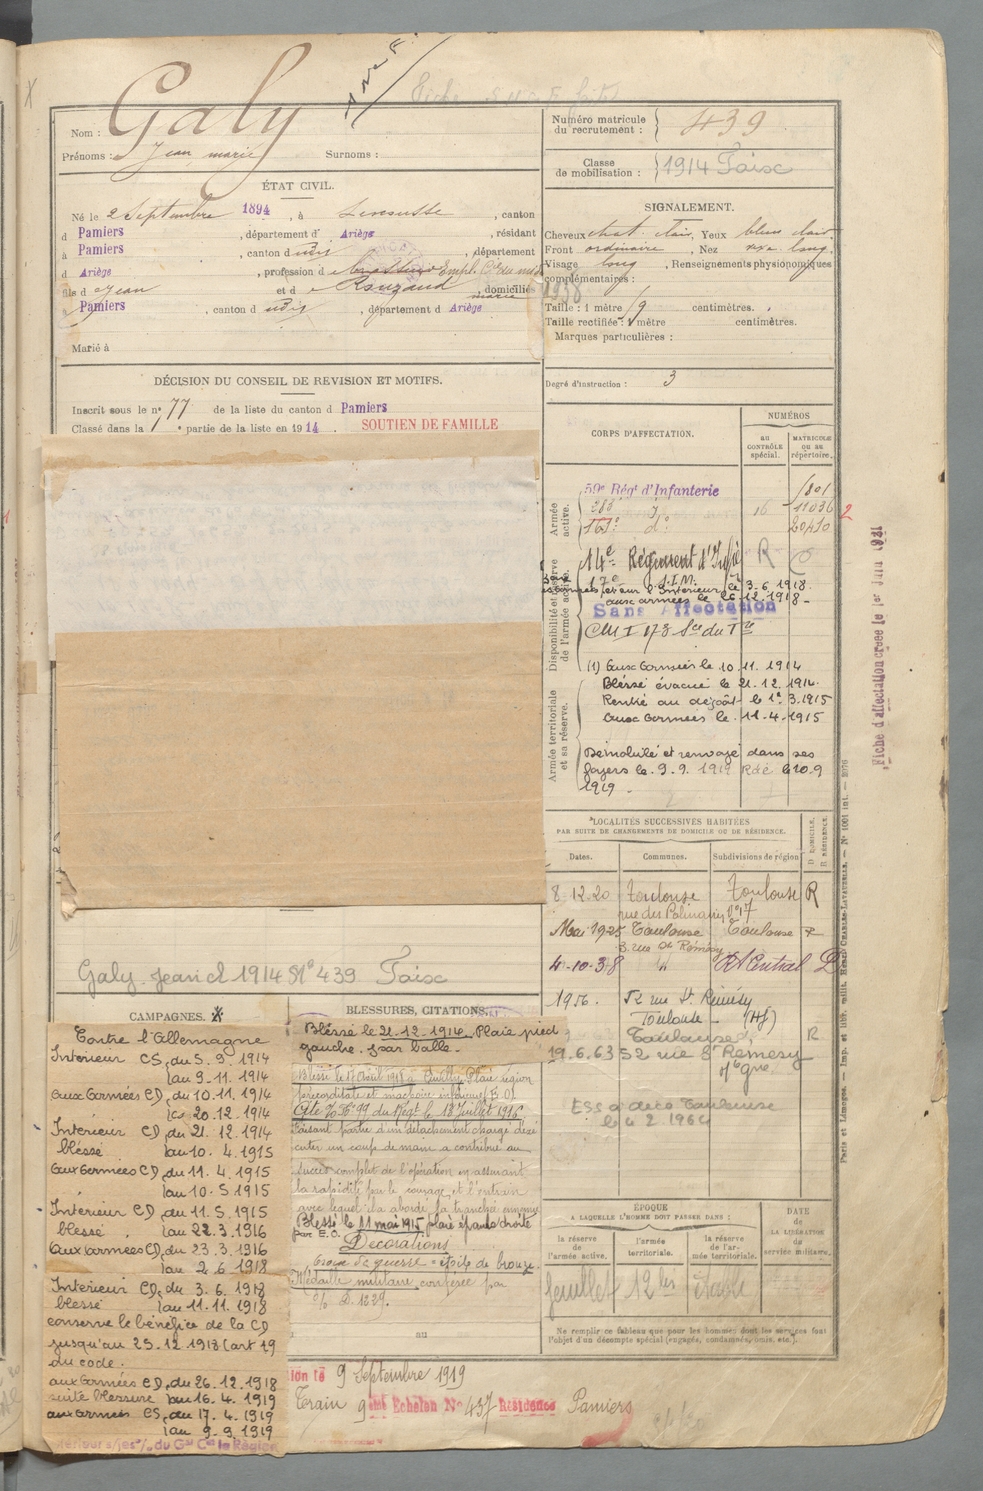 Galy
Nom :
Prénoms : Jean marie Surnoms :
ÉTAT CIVIL.
Né le 2 Septembre 1894, à , canton
d Pamiers, département d' Ariège, résidant
à Pamiers, canton d udit, département
d Ariège, profession d Empl.
fils d Jean et d Rouzaud marie, domiciliés
à Pamiers, canton d udit, département d Ariège
Marié à
DÉCISION DU CONSEIL DE REVISION ET MOTIFS.
Inscrit sous le n° 77 de la liste du canton d Pamiers
Classé dans la 1e partie de la liste en 1914. SOUTIEN DE FAMILLE
Galy Jean cl 1914 N° 439 Foix
CAMPAGNES.
Contre l'Allemagne
Intérieur CS, du 5. 9. 1914
au 9-11. 1914
aux armées CD, du 10.11. 1914
au 20-12. 1914
Intérieur CD, du 21. 12. 1914
blessé au 10. 4. 1915
aux armées CD, du 11. 4. 1915
au 10. 5 1915
Intérieur CD, du 11. 5. 1915
blessé au 22. 3. 1916
aux armées CD, du 23. 3. 1916
au 2. 6. 1918
Intérieur CD, du 3. 6. 1918
blessé au 11. 11. 1918
conserve le bénéfice de la CD
jusqu'au 25. 12. 1918 (art 19
du code.
aux armées CD, du 26. 12. 1918
suite blessure au 16. 4. 1919
aux armées CS, du 17. 4. 1919
au 9-9. 1919
BLESSURES, CITATIONS,
Bléssé le 21. 12. 1914. Plaie pied
gauche par balle.
Blessé le 17 Avril 1918 à Plaie région
Cité O. N° 99 du Régt le 13 Juillet 1916
Faisant partie d'un détachement chargé d'exé
cuter un coup de main a contribué au
succès complet de l'opération en assurant
la rapidité par le courage et l'entrain
avec lequel il a abordé la tranchée ennemie
Blessé le 11 mai 1915 plaie épaule droite
par E.O.
Décorations
Croix de guerre - étoile de bronze.
Médaille militaire, conférée par
D. 1229.
au
9 Septembre 1919
Train 9 Echelon N° 437 Résidence Pamiers
du Gal Ct la Région
Numéro matricule du recrutement : 439
Classe de mobilisation : 1914 Foix
SIGNALEMENT.
Cheveux chat. clair, Yeux bleus clair,
Front ordinaire, Nez long.
Visage long, Renseignements physionomiques
complémentaires :
1938
Taille : 1 mètre centimètres.
Taille rectifiée : 1 mètre centimètres.
Marques particulières :
Degré d'instruction : 3
CORPS D'AFFECTATION.
NUMÉROS
AU CONTRÔLE spécial.
MATRICULE OU AU répertoire.
Armée active.
59e Régt d'Infanterie
16 11036
161e do 20410
Disponibilité et réserve de l'armée active.
14e Régiment d'Infie R
l'Intérieur, le 3-6 1918.
aux armées le 26 12.1918
Sans Affectation
Armée territoriale et sa réserve.
(1) Aux Armées le 10. 11. 1914
Bléssé évacué le 21. 12. 1914.
Rentré au dépôt le 1er 3. 1915
Aux Armées le 11-4-1915
Démobilisé et renvoyé dans ses
foyers le 9. 9. 1919 Rdc le 10.9
1919.
LOCALITÉS SUCCESSIVES HABITÉES
PAR SUITE DE CHANGEMENTS DE DOMICILE OU DE RÉSIDENCE.
Dates. Communes. Subdivisions de région
D DOMICILE. R RÉSIDENCE.
8. 12. 20 Toulouse Toulouse R
n° 17
Mai 1925 Toulouse Toulouse R
3. rue St Rémésy
4-10-38 R Central D
1956. 52 rue St Rémésy
Toulouse (Hg)
Toulouse R
19. 6. 63 52 rue St Remesy
Toulouse
le 4 2 1964
ÉPOQUE
A LAQUELLE L'HOMME DOIT PASSER DANS :
la réserve de l'armée active. l'armée territoriale. la réserve de l'armée territoriale.
DATE de LA LIBÉRATION du service militaire.
feuillet 12 bis établi
Ne remplir ce tableau que pour les hommes dont les services font
l'objet d'un décompte spécial (engagés, condamnés, omis, etc.).
2
Fiche d'affectation créée le 1er Juin 1931
Paris et Limoges. — Imp. et libr. milit. Henri CHARLES-LAVAUZELLE. — N° 1001 int. — 2076